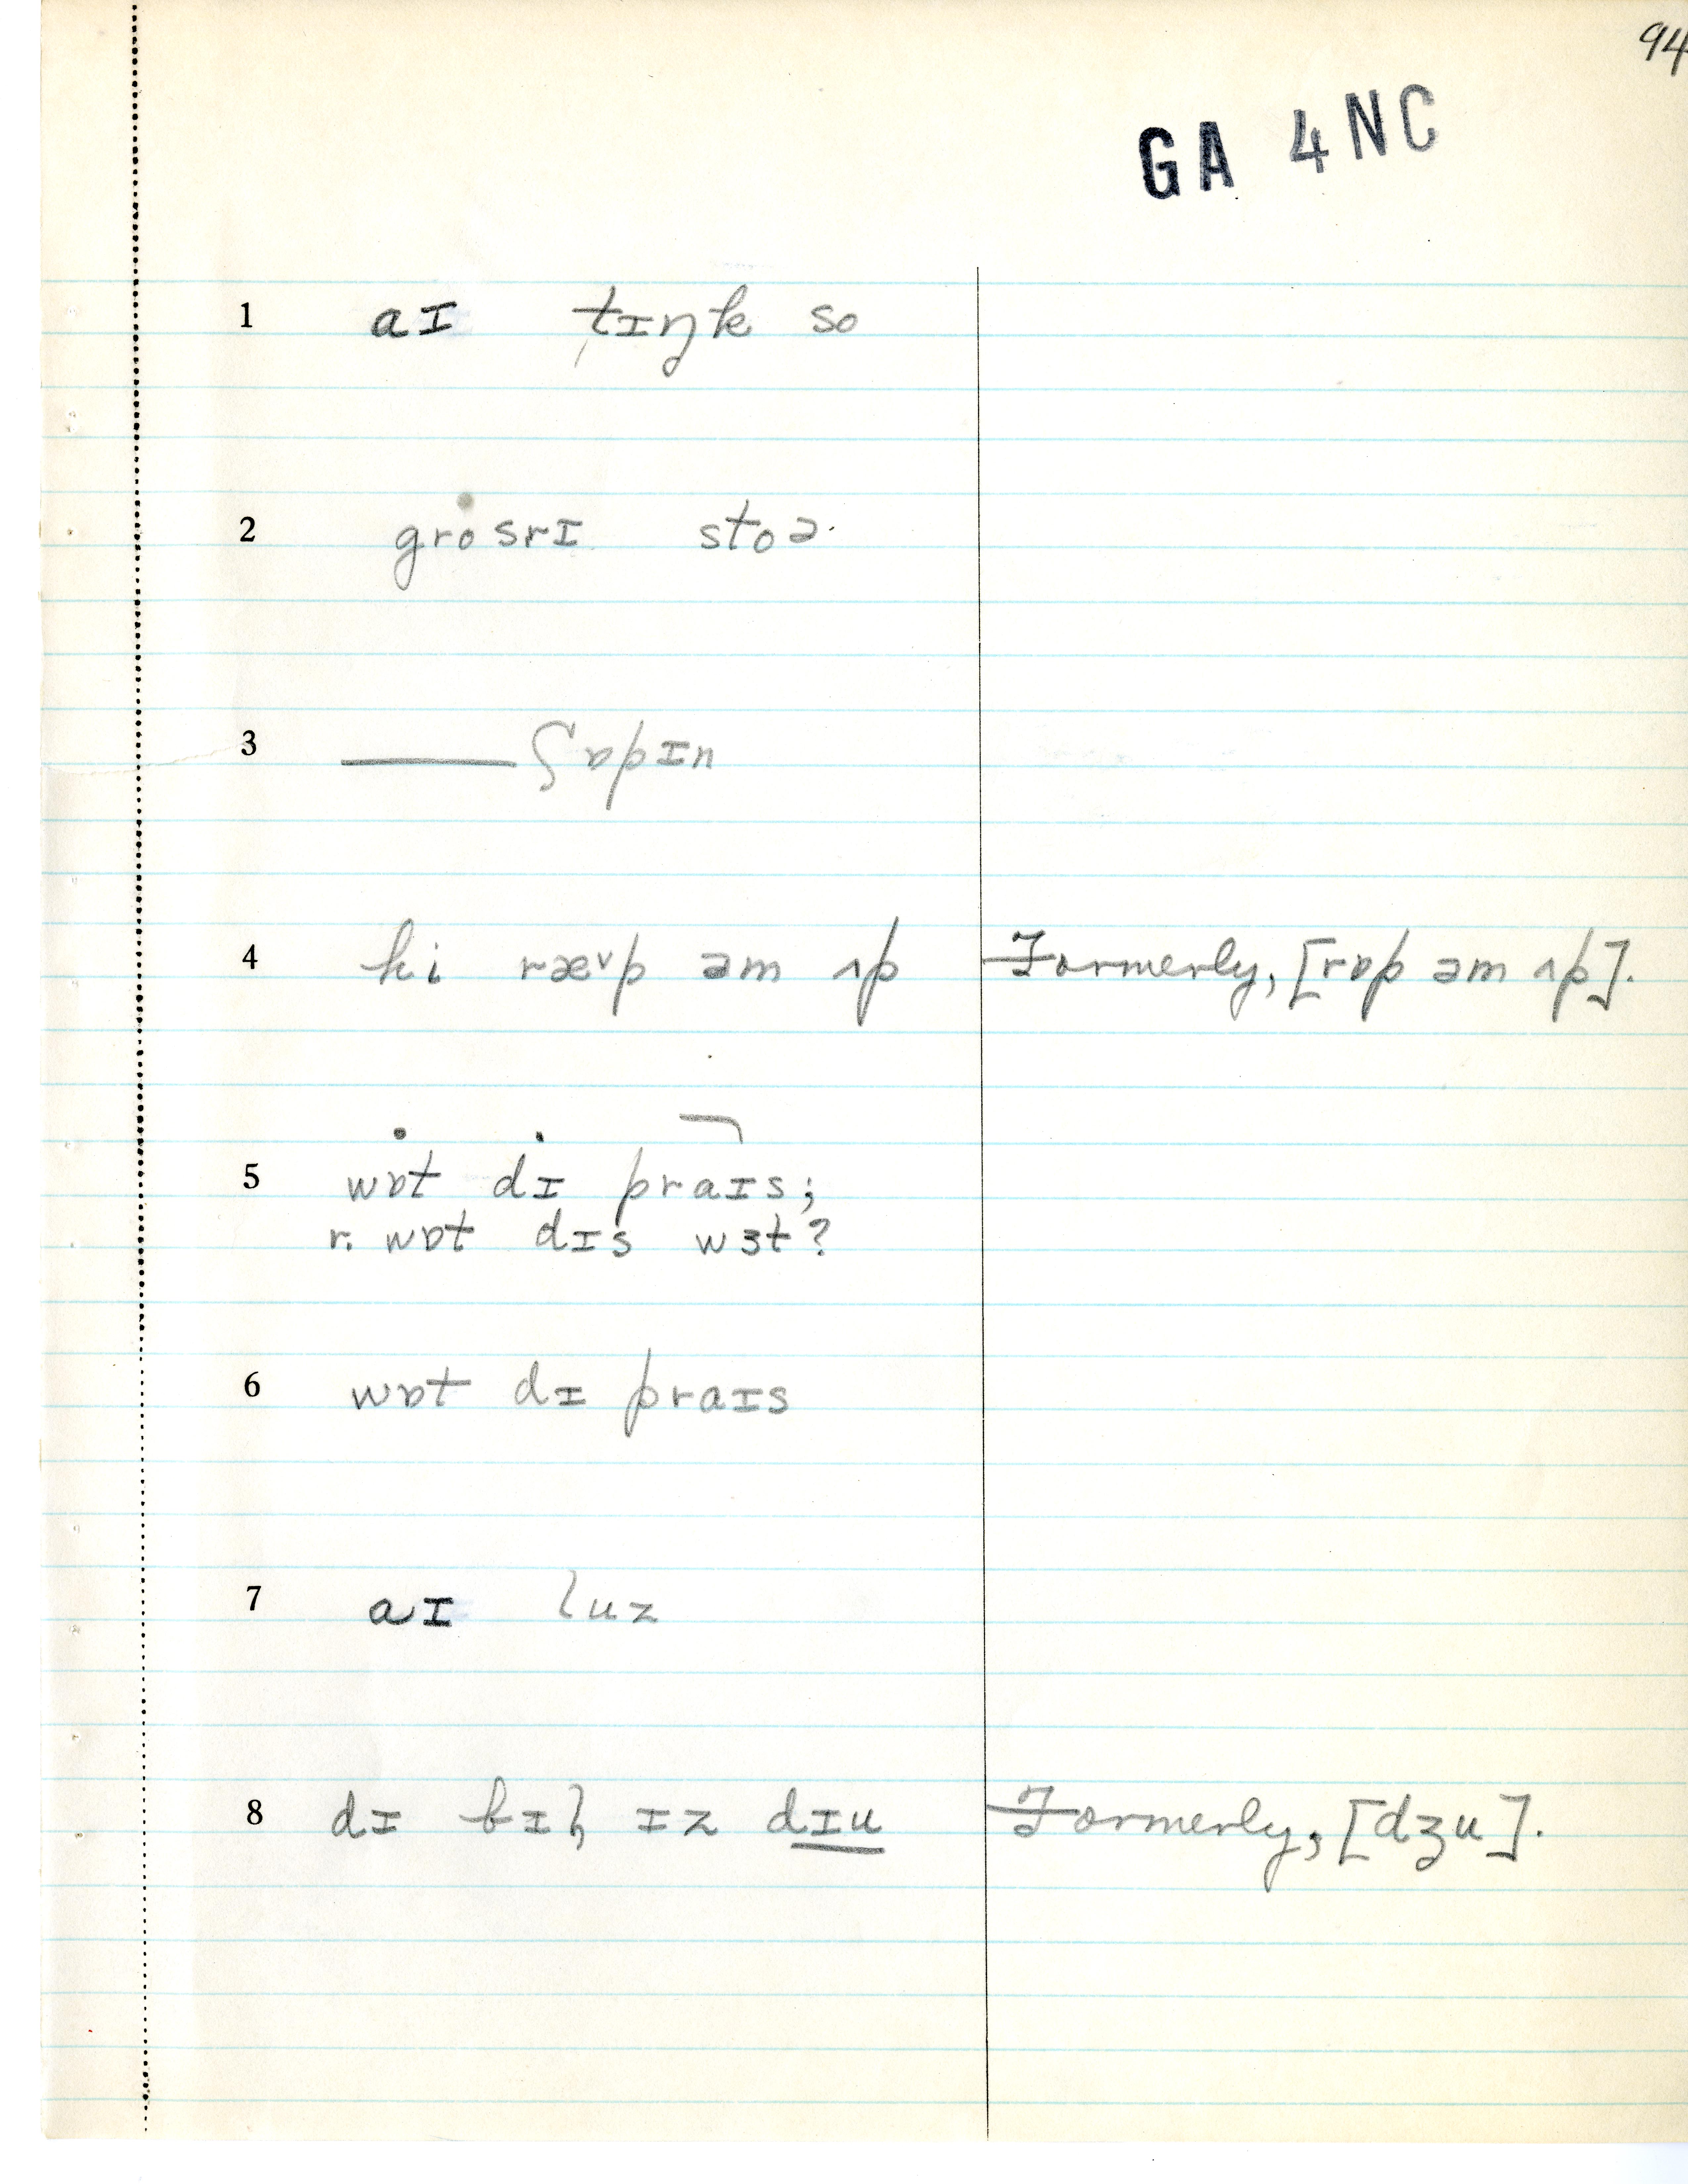 94
GA 4NC
1 aɪ t̡ɪŋk so
2 grosrɪ stoə
3 —— ʃɒpɪn
4 hi ræ˅p əm ʌp Formerly, [rɒp əm ʌp].
5 wɒt dɪ praɪs;
r. wɒt dɪs wɜt?
6 wɒt dɪ praɪs
7 aɪ luz
8 dɪ bɪl̡ ɪz dɪu Formerly, [dʒu].